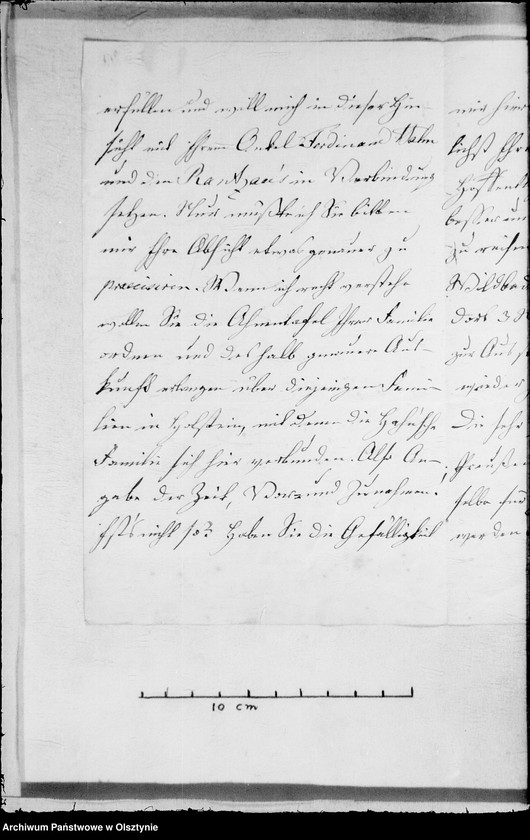 erfüllen und will mich in dieser Hin-
sicht mit ihrem Onkel Ferdinand Hahn
und den Rantzau's in Verbindung
setzen. Nur muß ich Sie bitten
mir Ihre Absicht etwas genauer zu
praecisiren. Wenn ich recht verstehe
wollen Sie die Ahnentafel Ihrer Familie
ordnen und deshalb genauere Aus-
kunft erlangen über diejenigen Fami-
lien in Holstein, mit denen die Hahnsche
Familie sich hier verbunden. Also An-
gabe der Zeit, Vor- und Zunahmen.
Ist's nicht so? Haben Sie die Gefälligkeit
mir hier
zu
Wildbad
dort
zur
wieder
Die sehr
Preußen
selbe
werden
10 cm
Archiwum Państwowe w Olsztynie